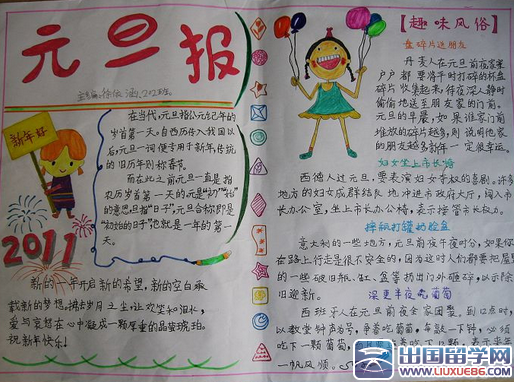 元旦报
主编:徐依涵、212班。
新年好
2011
在当代,元旦指公元纪年的
岁首第一天。自西历传入我国以
后,元旦一词便专用于新年,传统
的旧历新年则称春节。
而在此之前元旦一直是指
农历岁首第一天的。元是"初""始"
的意思,旦指"日子",元旦合称即是
"初始的日子"也就是一年的第一
天。
新的一年开启新的希望,新的空白承
载新的梦想。拂去岁月之尘,让欢笑和泪水,
爱与哀愁在心中凝成一颗厚重的晶莹琥珀。
祝新年快乐!
【趣味风俗】
盘碎片送朋友
丹麦人在元旦前夜,家家
户户都要将平时打碎的杯盘
碎片收集起来,待夜深人静时
偷偷地送至朋友家的门前。
元旦的早晨,如果谁家门前
堆放的碎片越多,则说明他家
的朋友越多,新年一定很幸运。
妇女坐上市长椅
西德人过元旦,要表演妇女夺权的喜剧。许多
地方的妇女成群结队地冲进市政府大厅,闯入市
长办公室,坐上市长办公椅,表示接管市长权力。
摔瓶打罐扔脸盆
意大利的一些地方,元旦前夜午夜时分,如果你
在路上行走是很不安全的,因为这时人们都要把屋里
的一些破旧瓶、缸、盆等扔出门外砸碎,以示除
旧迎新。
深更半夜吃葡萄
西班牙人在元旦前夜全家团聚,到12点时,
以教堂钟声为号,争着吃葡萄,每敲一下钟,必须
吃下一颗葡萄,
一帆风顺。
出国留学网
WWW.LIUXUE86.COM